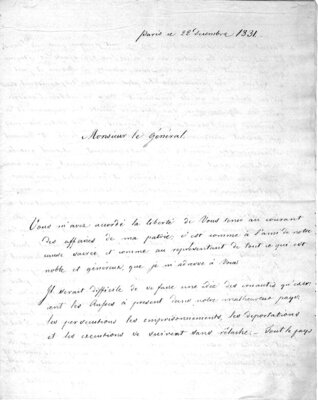 Paris ce 28 decembre 1831.
Monsieur le Général.
Vous m'avez accordé la liberté de Vous tenir au courant
des affaires de ma patrie, c'est comme à l'ami de notre
cause sacrée et comme au représentant de tout ce qui est
noble et généreux, que je m'adresse à Vous
Il serait difficile de se faire une idée des cruautés qu'exer-
cent les Russes à présent dans notre malheureux pays;
les persécutions les emprisonnements, les déportations
et les executions se suivent sans relâche. — Tout le pays